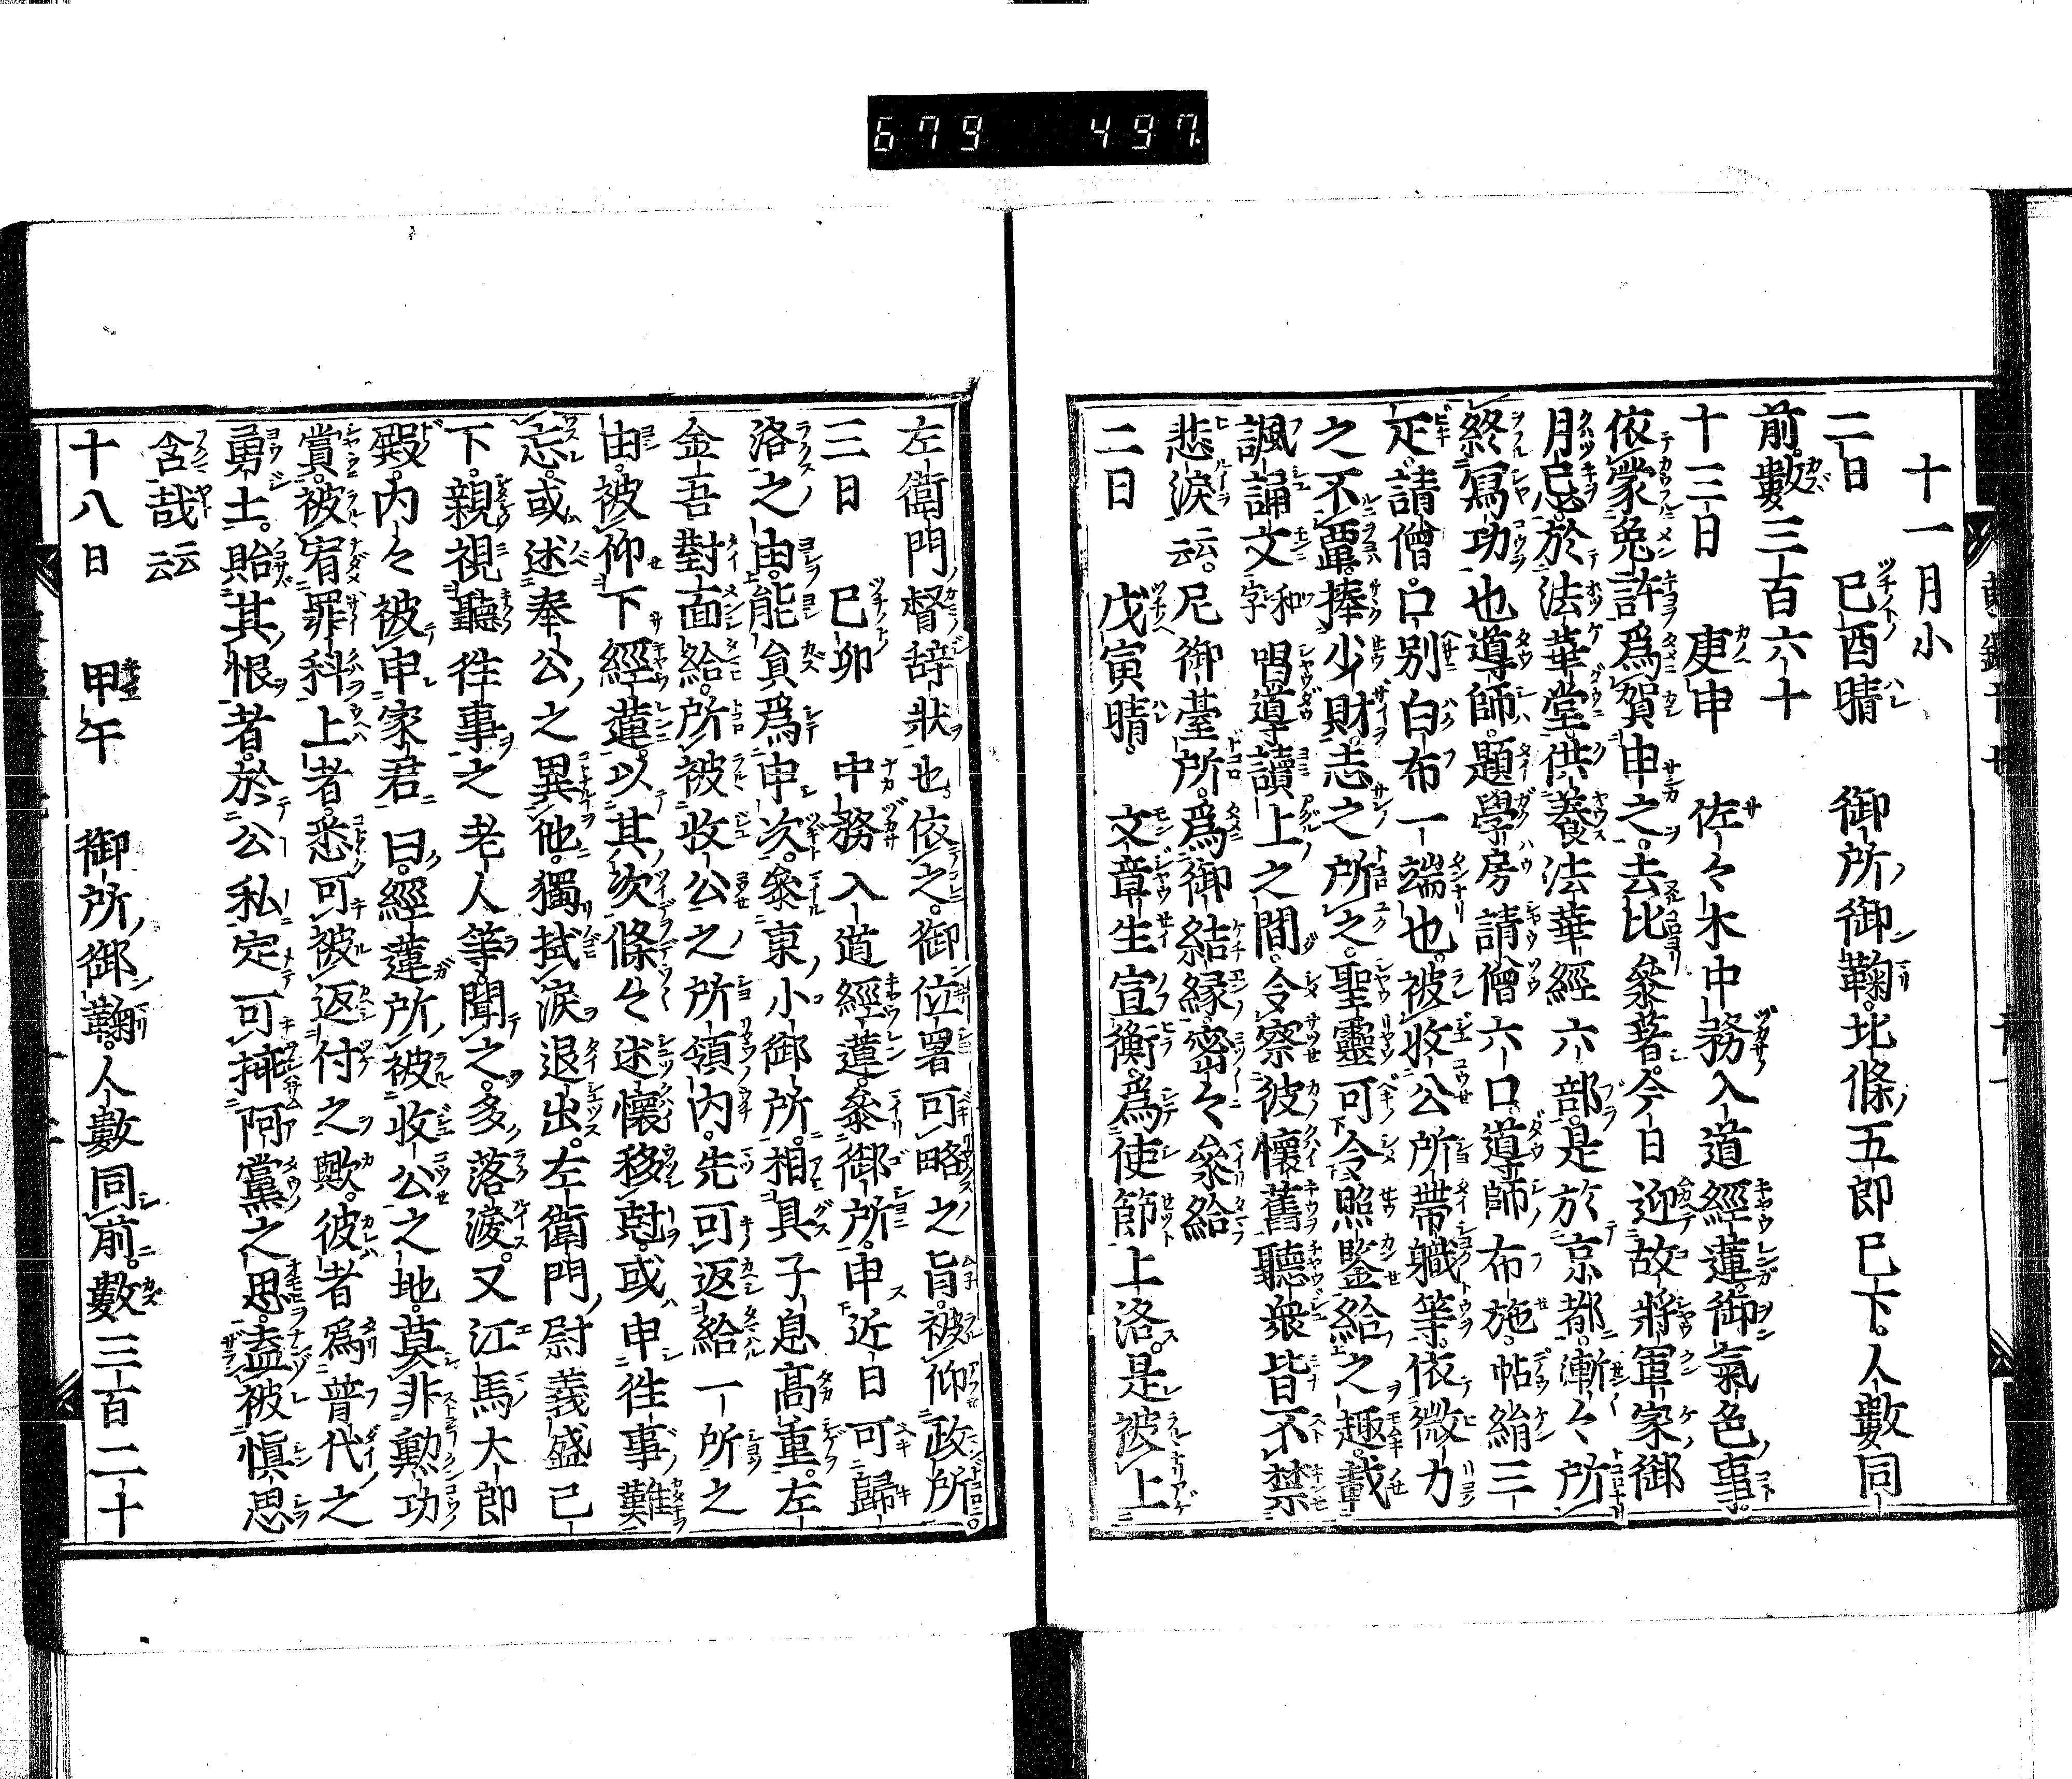 679 497
十一月小
二日 己酉晴 御所御鞠。北條五郎已下。人數同
前。數三百六十
十三日 庚申 佐々木中務入道經蓮。御氣色事。
依蒙免許。爲賀申之。去比參著。今日迎故將軍家御
月忌。於法華堂。供養法華經六部。是於京都。漸々所
終寫功也。導師。題學房請僧六口。導師布施。帖絹三
疋。請僧。口別白布一端也。被收公所帶職等。依微力
之不覃。捧少財。志之所之。聖靈可令照鑒給之趣。載
諷誦文和字唱導讀上之間。令察彼懷舊聽衆皆不禁
悲涙云云。尼御臺所。爲御結縁。密々參給
二日 戊寅晴。 文章生宣衡。爲使節上洛。是被上
左衛門督辞狀也。依之。御位署可略之旨。被仰政所。
三日 己卯 中務入道經蓮參御所。申近日可歸
洛之由。能員爲申次。參東小御所。相具子息高重。左
金吾對面給。所被收公之所領内。先可返給一所之
由。被仰下經蓮。以其次條々述懷移尅。或申徃事難
忘。或述奉公之異他。獨拭涙退出。左衛門尉義盛已
下。親視聽徃事之老人等。聞之。多落涙。又江馬太郎
殿。内々被申家君曰。經蓮所被收公之地。莫非勲功
賞。被宥罪科上者。悉可被返付之歟。彼者爲普代之
勇士。貽其恨者。於公私定可挿阿黨之思。盍被愼思
含哉云云
十八日 甲午 御所御鞠。人數同前。數三百二十